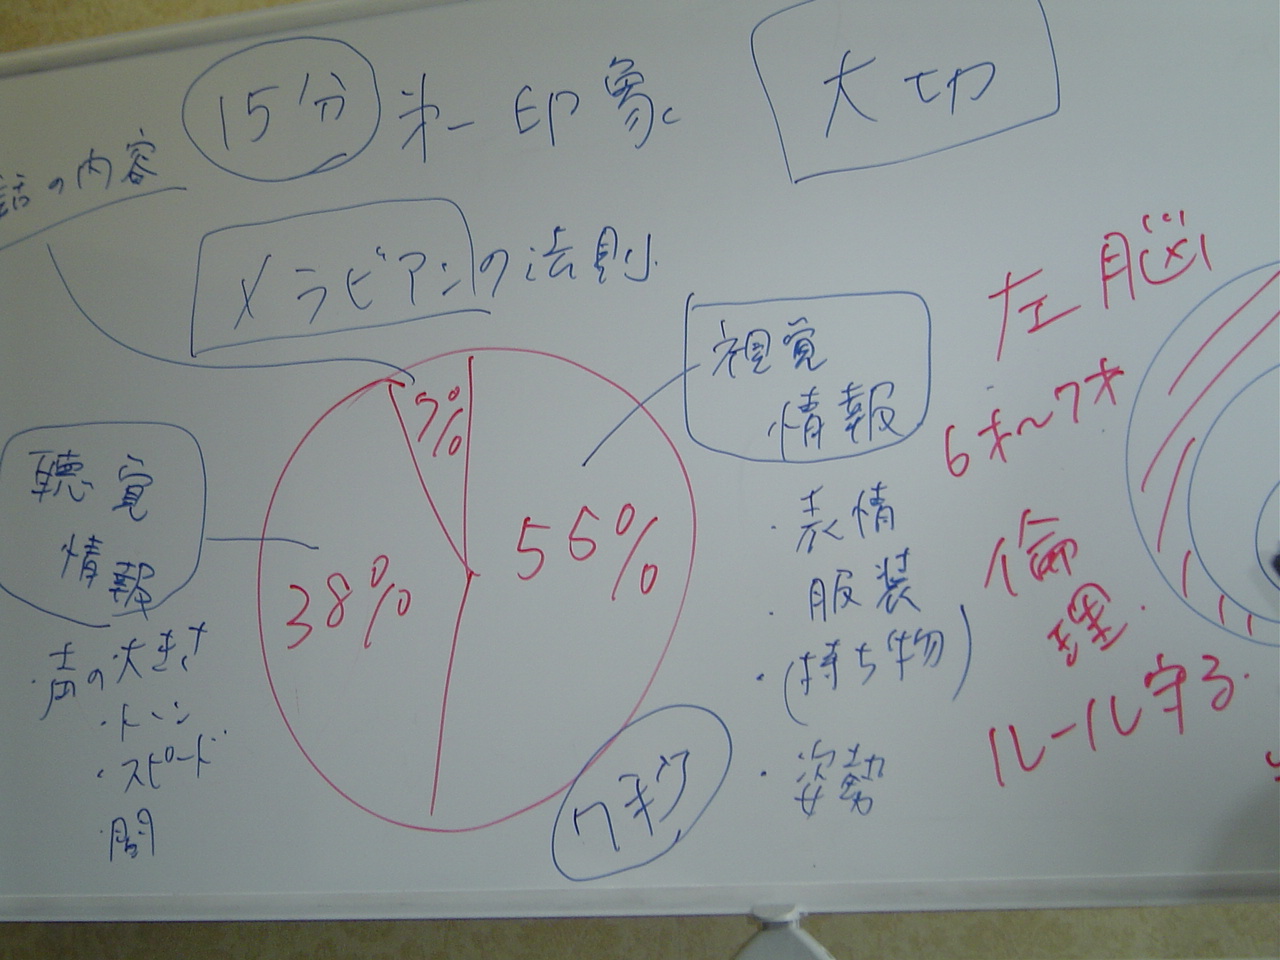 15分 第一印象 大切
話の内容
メラビアンの法則
7%
56%
38%
視覚
情報
・表情
・服装
・(持ち物)
・姿勢
聴覚
情報
・声の大きさ
・トーン
・スピード
・間
左脳
6才～7才
倫
理
ルール守る